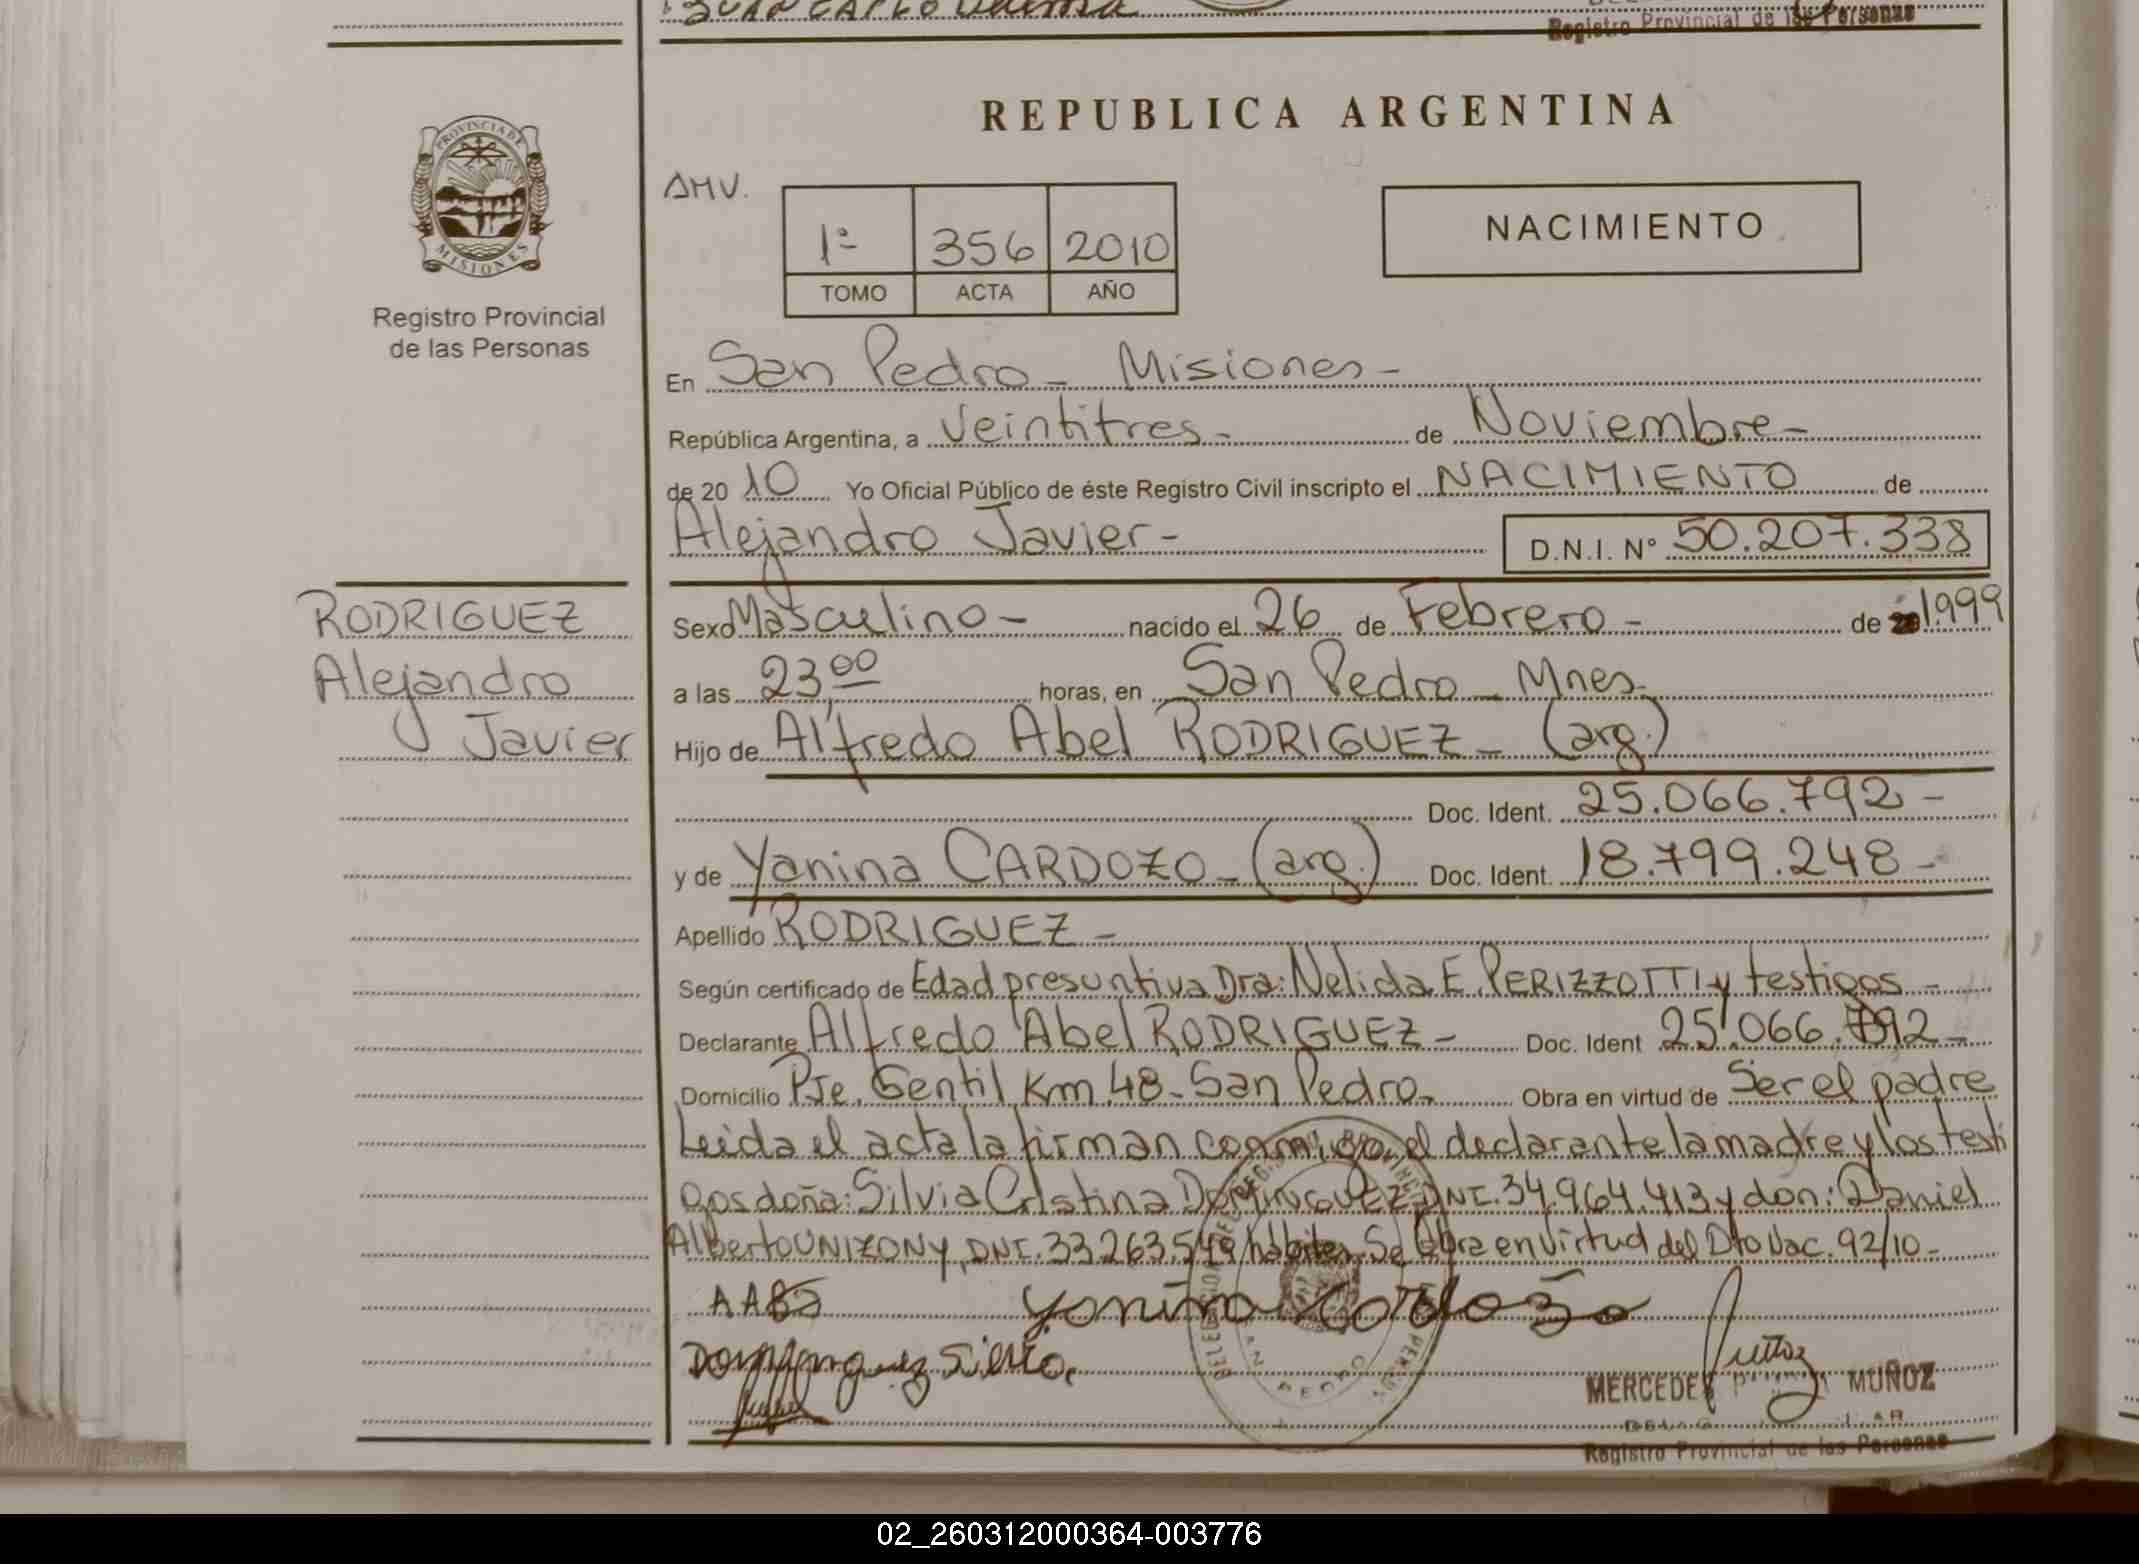 Registro Provincial de las Personas
REPUBLICA ARGENTINA
PROVINCIA DE
MISIONES
Registro Provincial
de las Personas
AMV.
1º 356 2010
TOMO ACTA AÑO
NACIMIENTO
En San Pedro - Misiones -
República Argentina, a veintitres - de Noviembre -
de 20 10 Yo Oficial Público de éste Registro Civil inscripto el NACIMIENTO de
Alejandro Javier - D.N.I. N° 50.207.338
RODRIGUEZ
Alejandro
Javier
Sexo Masculino - nacido el 26 de Febrero - de 1.999
a las 23,00 horas, en San Pedro - Mnes.
Hijo de Alfredo Abel RODRIGUEZ - (arg.)
Doc. Ident. 25.066.792 -
y de Yanina CARDOZO - (arg.) Doc. Ident. 18.799.248 -
Apellido RODRIGUEZ -
Según certificado de Edad presuntiva Dra: Nelida E. PERIZZOTTI y testigos -
Declarante Alfredo Abel RODRIGUEZ - Doc. Ident 25.066.792 -
Domicilio Pje. Gentil Km 48 - San Pedro. Obra en virtud de Ser el padre
Leida el acta la firman conmigo el declarante la madre y los testi
gos doña: Silvia Cristina DOMINGUEZ DNI. 34.964.413 y don: Daniel
Alberto UNIZONY, DNI. 33.263.549 habiles. Se Obra en virtud del Dto Nac. 92/10 -
Yanina Cardozo
Dominguez Silvia.
MERCEDES MUÑOZ
Registro Provincial de las Personas
SAN PEDRO
02_260312000364-003776